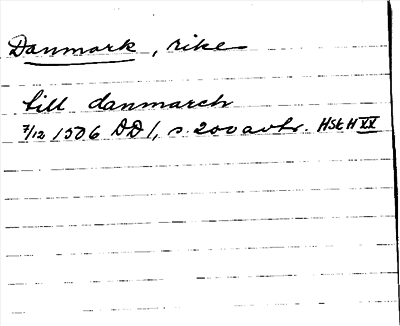 Danmark, rike
till danmarch
7/12 1506 DD1, s. 200 avtr. HSH XX